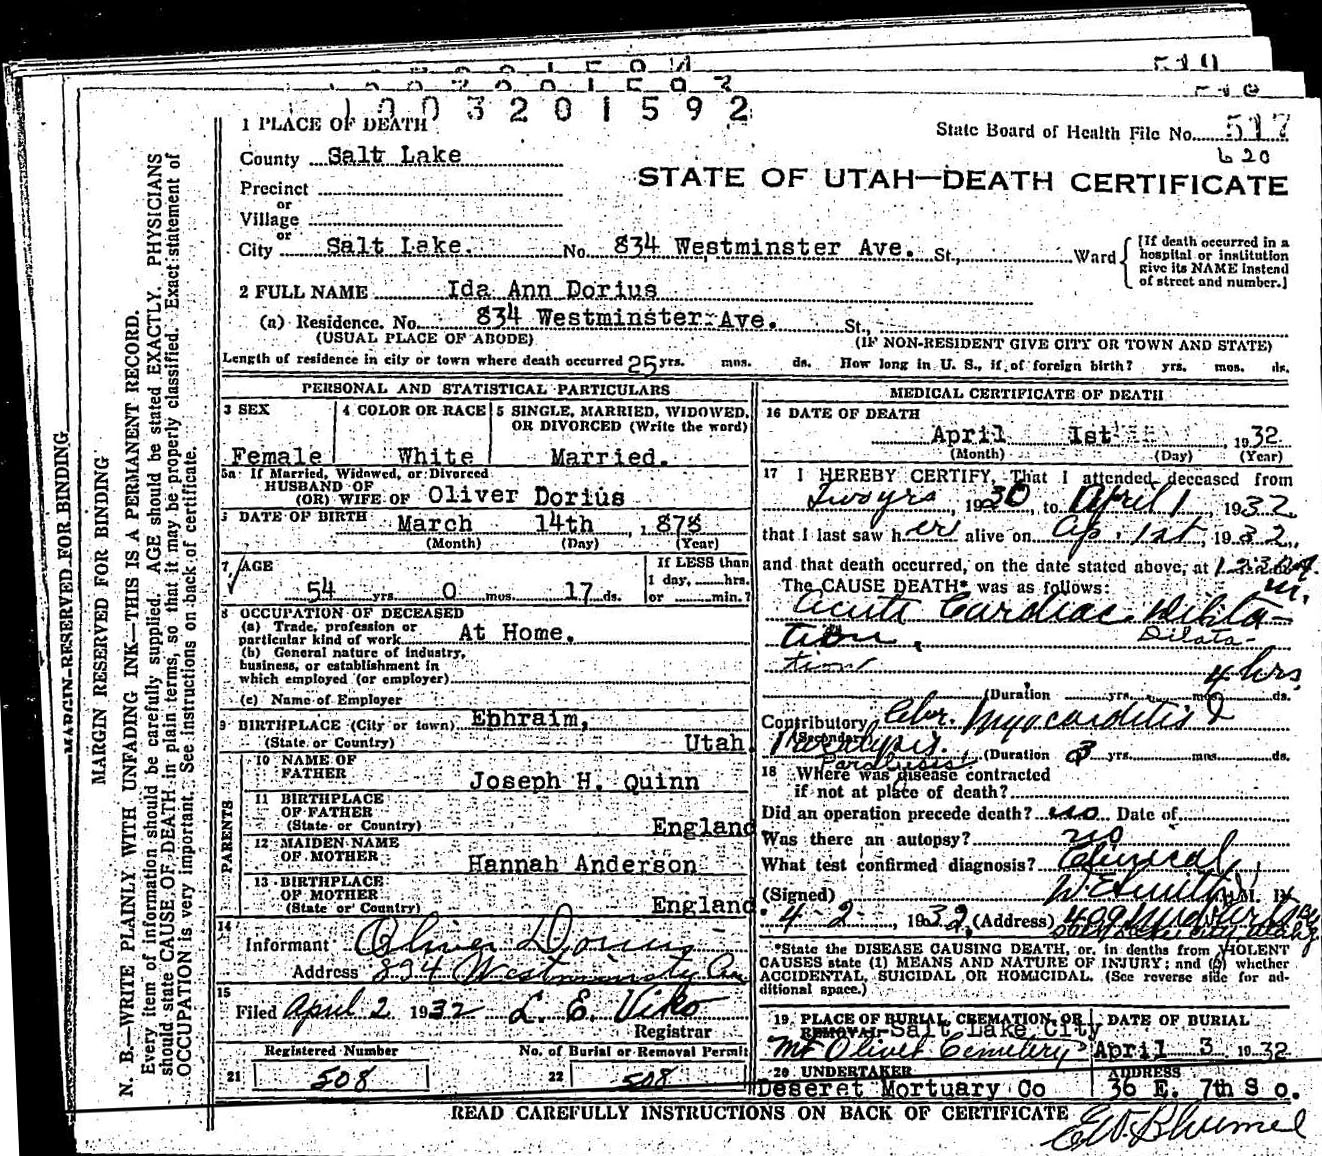 1003201592
State Board of Health File No. 517
620
1 PLACE OF DEATH
County Salt Lake
STATE OF UTAH—DEATH CERTIFICATE
Precinct
or
Village
or
City Salt Lake. No. 834 Westminster Ave. St., Ward
[If death occurred in a hospital or institution give its NAME instead of street and number.]
2 FULL NAME Ida Ann Dorius
(a) Residence. No. 834 Westminster Ave. St.,
(USUAL PLACE OF ABODE) (IF NON-RESIDENT GIVE CITY OR TOWN AND STATE)
Length of residence in city or town where death occurred 25 yrs. mos. ds. How long in U. S., if of foreign birth? yrs. mos. ds.
PERSONAL AND STATISTICAL PARTICULARS
3 SEX
Female
4 COLOR OR RACE
White
5 SINGLE, MARRIED, WIDOWED, OR DIVORCED (Write the word)
Married.
5a If Married, Widowed, or Divorced
HUSBAND OF
(OR) WIFE OF Oliver Dorius
DATE OF BIRTH March 14th , 1878
(Month) (Day) (Year)
7 AGE
54 yrs. 0 mos. 17 ds.
If LESS than
1 day, hrs.
or min.?
8 OCCUPATION OF DECEASED
(a) Trade, profession or
particular kind of work At Home.
(b) General nature of industry,
business, or establishment in
which employed (or employer)
(c) Name of Employer
9 BIRTHPLACE (City or town) Ephraim,
(State or Country) Utah
PARENTS
10 NAME OF
FATHER Joseph H. Quinn
11 BIRTHPLACE
OF FATHER
(State or Country) England
12 MAIDEN NAME
OF MOTHER Hannah Anderson
13 BIRTHPLACE
OF MOTHER
(State or Country) England
14
Informant Oliver Dorius
Address 834 Westminster Ave
15
Filed April 2 1932 L. E. Viko
Registrar
Registered Number
21 508
No. of Burial or Removal Permit
22 508
MEDICAL CERTIFICATE OF DEATH
16 DATE OF DEATH
April 1st 1932
(Month) (Day) (Year)
17 I HEREBY CERTIFY, That I attended deceased from
Two yrs , 1930, to April 1 , 1932,
that I last saw her alive on Ap. 1st, 1932,
and that death occurred, on the date stated above, at
m.
The CAUSE DEATH* was as follows:
Acute Cardiac Dilita-
tion,
Dilata-
tion
4 hrs
(Duration yrs. mos. ds.
Contributory Myocarditis &
(Secondary)
Paralysis.
Paralysis (Duration 3 yrs. mos. ds.
18 Where was disease contracted
if not at place of death?
Did an operation precede death? no Date of
Was there an autopsy? no
What test confirmed diagnosis? Clinical
(Signed) W. E. Smith M.
4 - 2 , 1932, (Address)
*State the DISEASE CAUSING DEATH, or, in deaths from VIOLENT
CAUSES state (1) MEANS AND NATURE OF INJURY; and (2) whether
ACCIDENTAL, SUICIDAL OR HOMICIDAL. (See reverse side for ad-
ditional space.)
19 PLACE OF BURIAL, CREMATION, OR
REMOVAL Salt Lake City
Mt Olivet Cemetery
DATE OF BURIAL
April 3 1932
20 UNDERTAKER
Deseret Mortuary Co
ADDRESS
36 E. 7th So.
READ CAREFULLY INSTRUCTIONS ON BACK OF CERTIFICATE
MARGIN RESERVED FOR BINDING
MARGIN RESERVED FOR BINDING
N. B.—WRITE PLAINLY WITH UNFADING INK—THIS IS A PERMANENT RECORD.
Every item of information should be carefully supplied. AGE should be stated EXACTLY. PHYSICIANS
should state CAUSE OF DEATH in plain terms, so that it may be properly classified. Exact statement of
OCCUPATION is very important. See instructions on back of certificate.